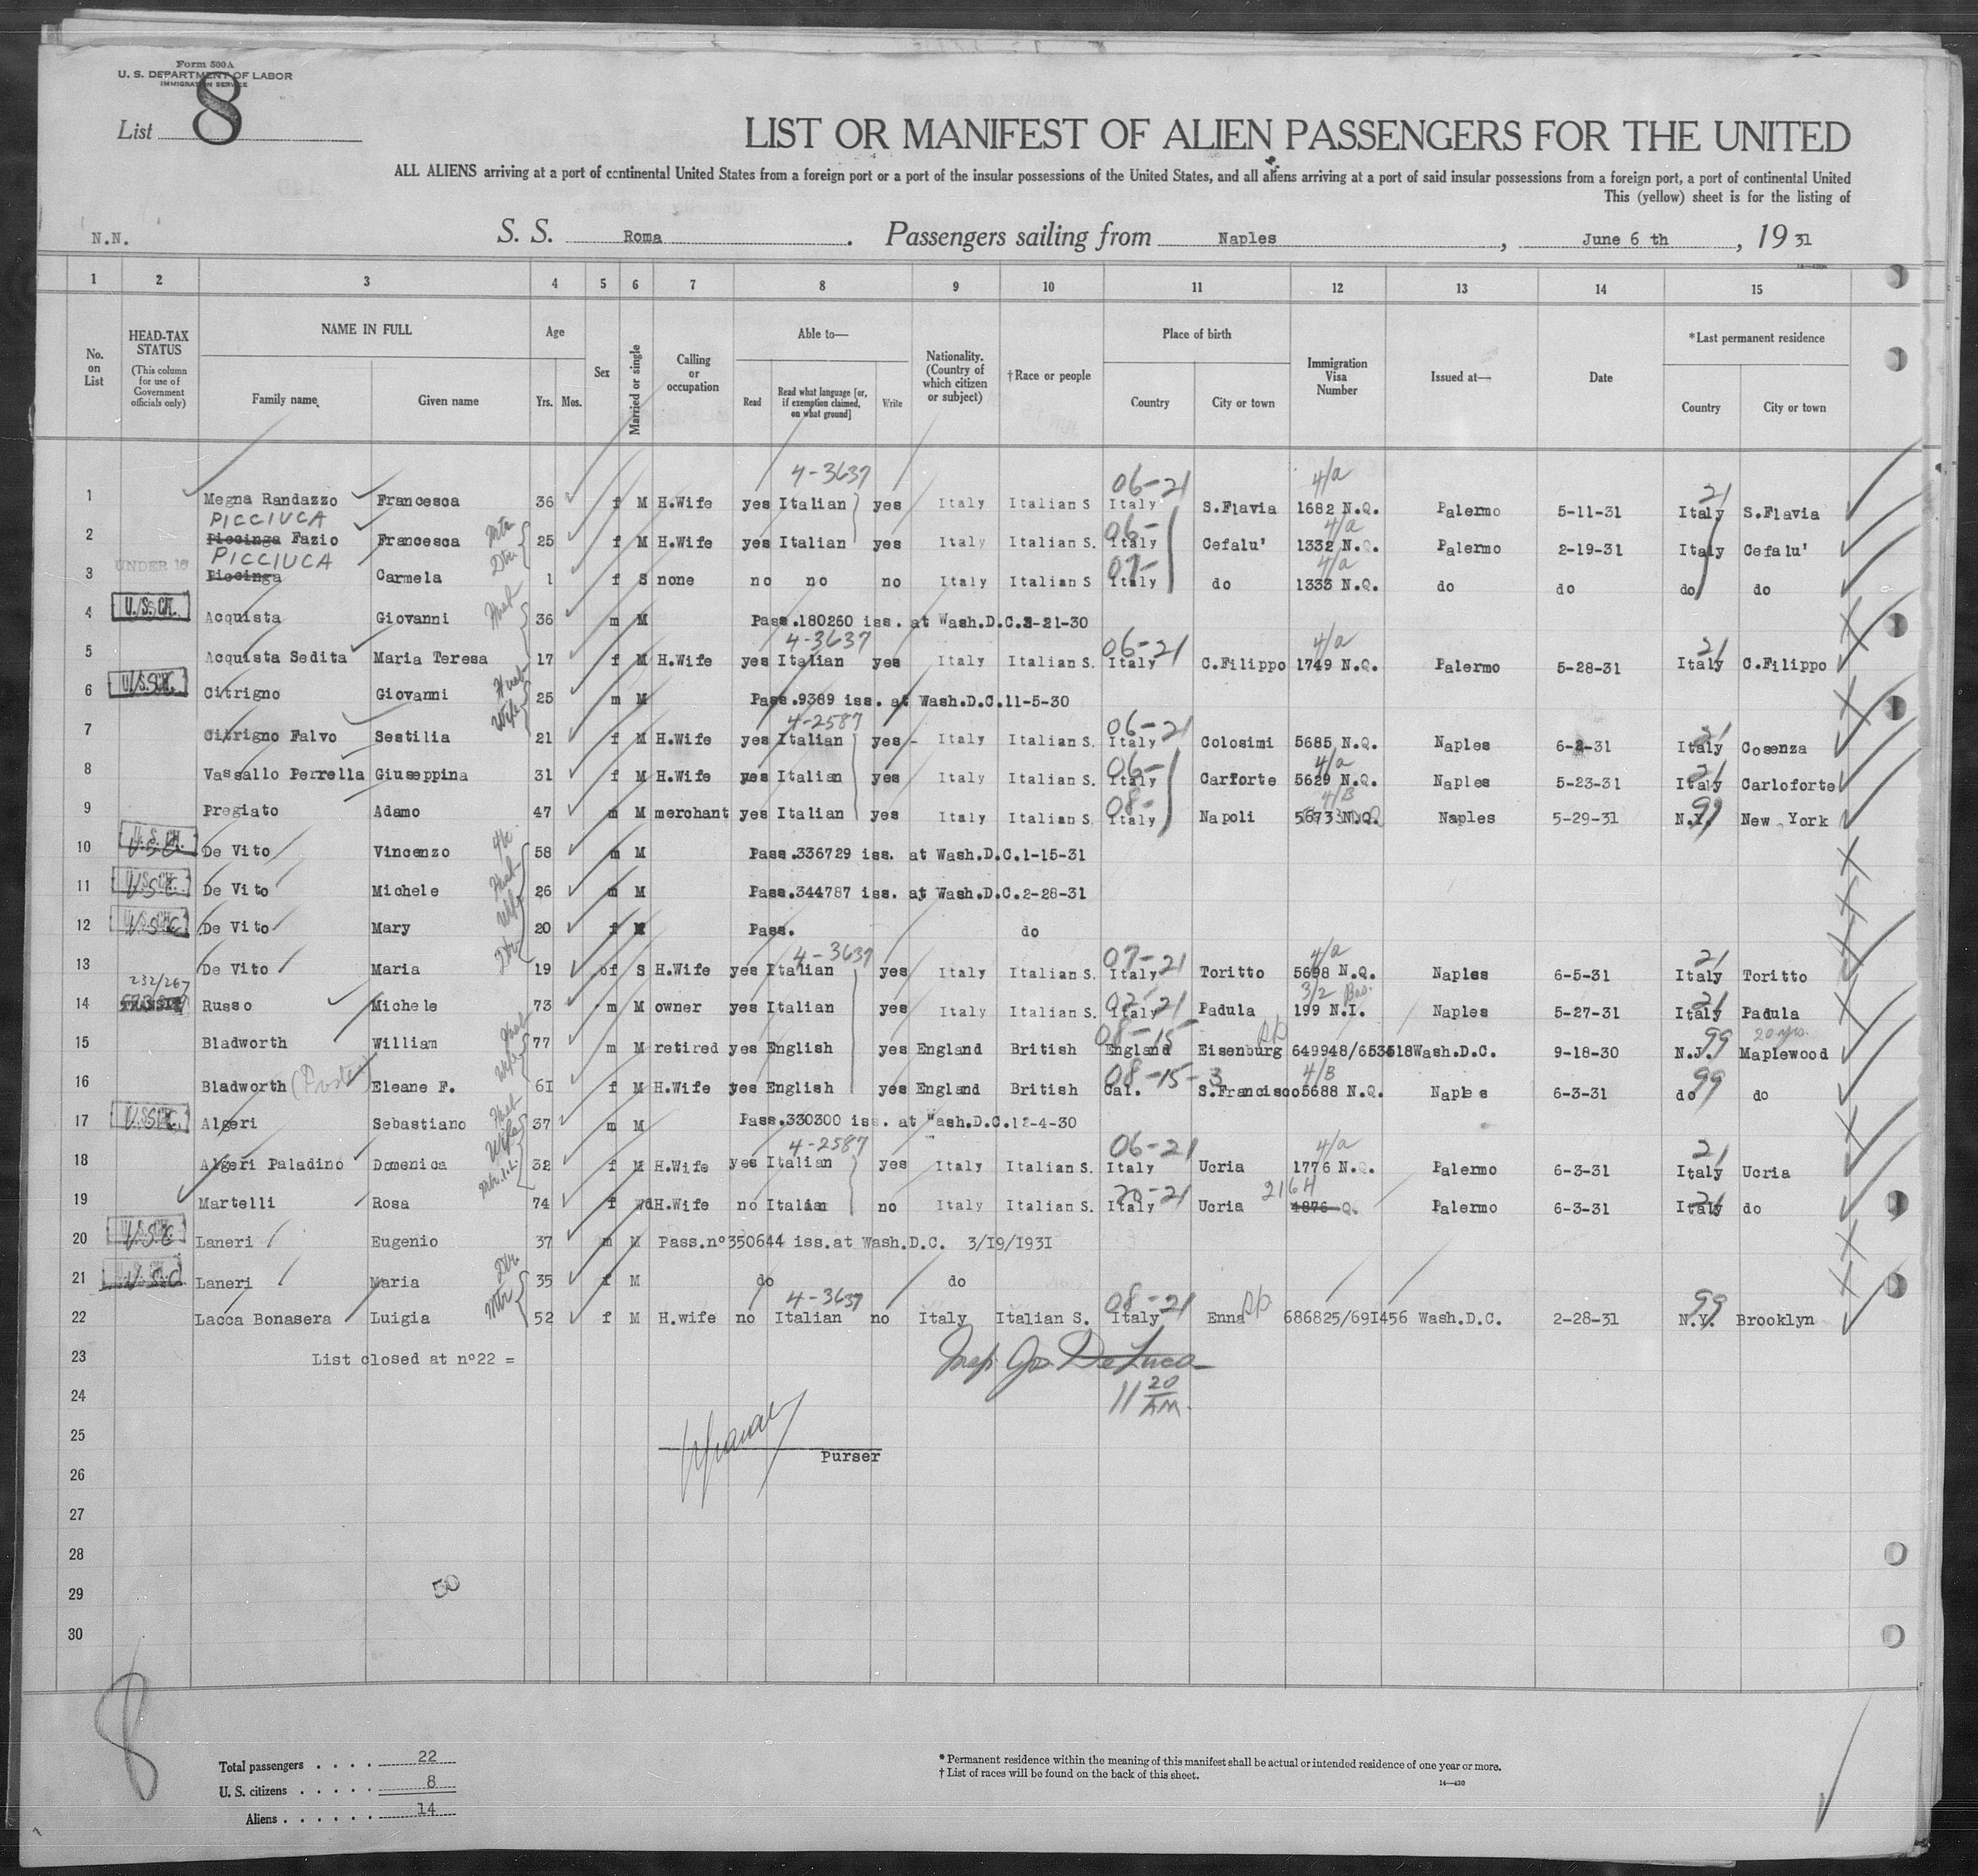 Form 500A
U. S. DEPARTMENT OF LABOR
IMMIGRATION SERVICE
List 8
LIST OR MANIFEST OF ALIEN PASSENGERS FOR THE UNITED
ALL ALIENS arriving at a port of continental United States from a foreign port or a port of the insular possessions of the United States, and all aliens arriving at a port of said insular possessions from a foreign port, a port of continental United
This (yellow) sheet is for the listing of
N.N. S. S. Roma. Passengers sailing from Naples, June 6 th, 19 31
1 2 3 4 5 6 7 8 9 10 11 12 13 14 15
No. on List
HEAD-TAX STATUS (This column for use of Government officials only)
NAME IN FULL Family name Given name
Age Yrs. Mos.
Sex
Married or single
Calling or occupation
Able to— Read Read what language [or, if exemption claimed, on what ground] Write
Nationality. (Country of which citizen or subject)
†Race or people
Place of birth Country City or town
Immigration Visa Number
Issued at—
Date
*Last permanent residence Country City or town
4-3637 06-21 4/a 21
1 Megna Randazzo Francesca 36 f M H.Wife yes Italian yes Italy Italian S Italy S.Flavia 1682 N.Q. Palermo 5-11-31 Italy S.Flavia
PICCIUCA Mtr 06- 4/a
2 Piccinga Fazio Francesca 25 f M H.Wife yes Italian yes Italy Italian S. Italy Cefalu' 1332 N.Q. Palermo 2-19-31 Italy Cefalu'
UNDER 16 PICCIUCA Dtr 07- 4/a
3 Piccinga Carmela 1 f S none no no no Italy Italian S Italy do 1333 N.Q. do do do do
4 U.S.CH. Acquista Giovanni Husb 36 m M Pass.180260 iss. at Wash.D.C.3-21-30
4-3637 06-21 4/a 21
5 Acquista Sedita Maria Teresa 17 f M H.Wife yes Italian yes Italy Italian S. Italy C.Filippo 1749 N.Q. Palermo 5-28-31 Italy C.Filippo
6 U.S.CH. Citrigno Giovanni Husb 25 m M Pass.9389 iss. at Wash.D.C.11-5-30
Wife 4-2587 06-21 21
7 Citrigno Falvo Sestilia 21 f M H.Wife yes Italian yes- Italy Italian S. Italy Colosimi 5685 N.Q. Naples 6-2-31 Italy Cosenza
06- 4/a 21
8 Vassallo Perrella Giuseppina 31 f M H.Wife yes Italian yes Italy Italian S. Italy Carforte 5629 N.Q. Naples 5-23-31 Italy Carloforte
08- 4/B 99
9 Pregiato Adamo 47 m M merchant yes Italian yes Italy Italian S. Italy Napoli 5673 N.Q. Naples 5-29-31 N.Y. New York
10 U.S.CH. USC De Vito Vincenzo 58 m M Pass.336729 iss. at Wash.D.C.1-15-31
11 U.S.CH. USC De Vito Michele Husb 26 m M Pass.344787 iss. at Wash.D.C.2-28-31
12 U.S.CH. USC De Vito Mary Wife 20 f M Pass. do
Dtr 4-3637 07-21 4/a 21
13 De Vito Maria 19 f S H.Wife yes Italian yes Italy Italian S. Italy Toritto 5698 N.Q. Naples 6-5-31 Italy Toritto
232/267 02-21 3/2 21
14 TRANSIT Russo Michele 73 m M owner yes Italian yes Italy Italian S. Italy Padula 199 N.I. Naples 5-27-31 Italy Padula
Husb 08-15 RP 99 20 yrs.
15 Bladworth William 77 m M retired yes English yes England British England Eisenburg 649948/653518 Wash.D.C. 9-18-30 N.J. Maplewood
Wife 08-15-3 4/B 99
16 Bladworth (Poster) Eleane F. 61 f M H.Wife yes English yes England British Cal. S.Francisco 5688 N.Q. Naples 6-3-31 do do
17 U.S.CH. USC Algeri Sebastiano Husb 37 m M Pass.330300 iss. at Wash.D.C.12-4-30
Wife 4-2587 06-21 4/a 21
18 Algeri Paladino Domenica 32 f M H.Wife yes Italian yes Italy Italian S. Italy Ucria 1776 N.Q. Palermo 6-3-31 Italy Ucria
Mtr.i.L. 20-21 2164 21
19 Martelli Rosa 74 f wd H.Wife no Italian no Italy Italian S. Italy Ucria 1876 Q. Palermo 6-3-31 Italy do
20 U.S.CH. USC Laneri Eugenio 37 m M Pass.n°350644 iss.at Wash.D.C. 3/19/1931
21 U.S.CH. USC Laneri Maria Dtr. 35 f M do do
Mtr 4-3637 08-21 RP 99
22 Lacca Bonasera Luigia 52 f M H.wife no Italian no Italy Italian S. Italy Enna 686825/691456 Wash.D.C. 2-28-31 N.Y. Brooklyn
23 List closed at n°22 = Insp. Jos De Luca
24 11 20 AM.
25
Purser
26
27
28
29 50
30
8
Total passengers . . . . 22
U. S. citizens . . . . . 8
Aliens . . . . . . 14
* Permanent residence within the meaning of this manifest shall be actual or intended residence of one year or more.
† List of races will be found on the back of this sheet.
14—430